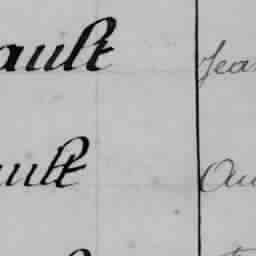 ault Jea
ault Au